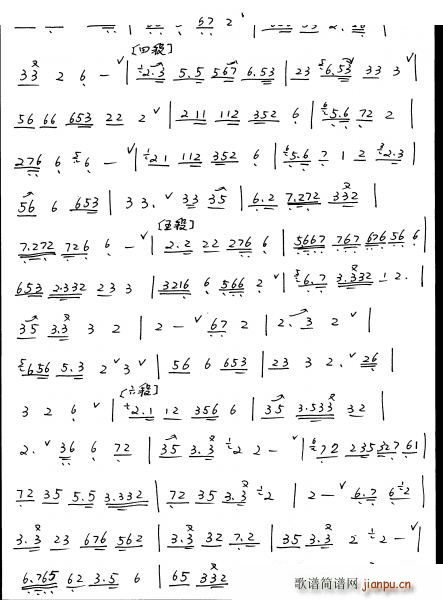 [四段]
3 3 2 6 - ˅ | 2.3 5.5 567 6.53 | 23 6.53 33 3 ˅
56 66 653 22 2 ˅ | 211 112 352 6 | 5.6 72 2
276 6 6 - ˅ | 21 112 352 6 | 5.6 7 1 2 2.3
56 6 653 | 3 3. ˅ 33 35 | 6.2 7.272 332 |
[五段]
7.272 726 6 - ˅ | 2.2 22 276 6 | 5667 767 676 56 6 |
653 2.332 23 3 | 3216 6 566 2 ˅ | 6.7 3.332 1 2. |
35 3.3 3 2 | 2 - ˅ 67 2 | 2. 3 2 ˅ |
656 5.3 2 ˅ 3 ˅ | 56 6 653 | 23 3 2. ˅ 26 |
[六段]
3 2 6 ˅ | 2.1 12 356 6 | 35 3.533 32 |
2. ˅ 36 6 72 | 35 3.3 2 2 - ˅ | 72 235 327 61 |
72 35 5.5 3.332 | 72 35 3.3 2 | 2 - ˅ 6.7 6 2
3.3 23 676 562 | 3.3 32 7.2 | 35 3.3 2 2 - ˅
6.765 62 3.5 6 | 65 332
歌谱简谱网
jianpu.cn